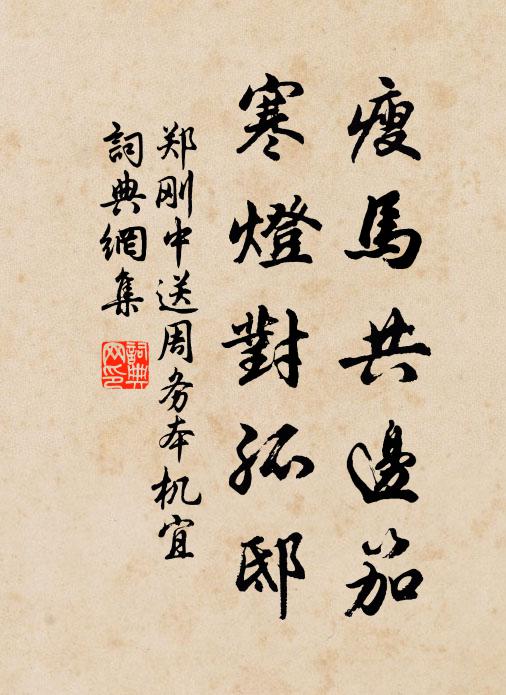 瘦馬共邊笳
寒燈對孤邸
郑刚中送周务本机宜
詞典網集
詞典网印